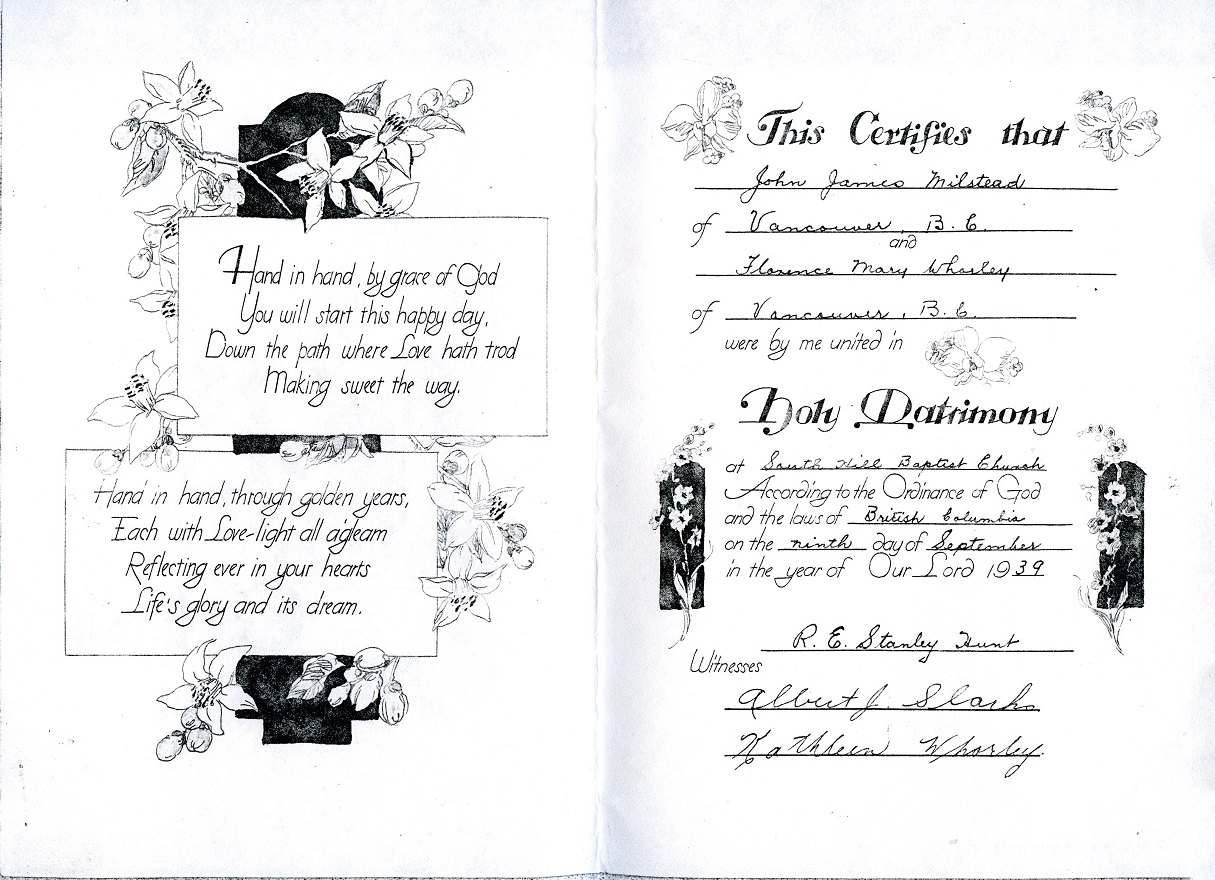 Hand in hand, by grace of God
You will start this happy day,
Down the path where Love hath trod
Making sweet the way.
Hand in hand, through golden years,
Each with Love-light all agleam
Reflecting ever in your hearts
Life's glory and its dream.
This Certifies that
John James Milstead
of Vancouver, B.C.
and
Florence Mary Whorley
of Vancouver, B.C.
were by me united in
Holy Matrimony
at South Hill Baptist Church
According to the Ordinance of God
and the laws of British Columbia
on the ninth day of September
in the year of Our Lord 1939
R. E. Stanley Hunt
Witnesses
Albert J.
Kathleen Whorley.